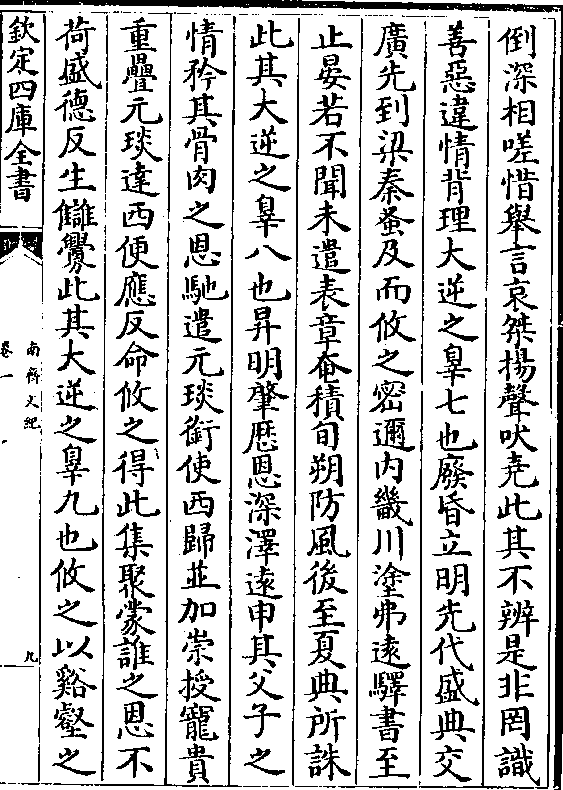 倒深相嗟惜舉言哀桀揚聲吠尭此其不辨是非罔識
善惡違情背理大逆之辠七也廢昏立明先代盛典交
廣先到梁秦蚤及而攸之密邇内畿川塗弗遠驛書至
止晏若不聞未遣表章奄積旬朔防風後至夏典所誅
此其大逆之辠八也昇明肇厯恩深澤遠申其父子之
情矜其骨肉之恩馳遣元琰銜使西歸並加崇授寵貴
重疊元琰達西便應反命攸之得此集聚蒙誰之恩不
荷盛德反生讎釁此其大逆之辠九也攸之以谿壑之
欽定四庫全書
南齊文紀
卷一
九